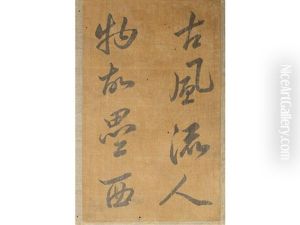 古風流人
物故墨西
NiceArtGallery.com